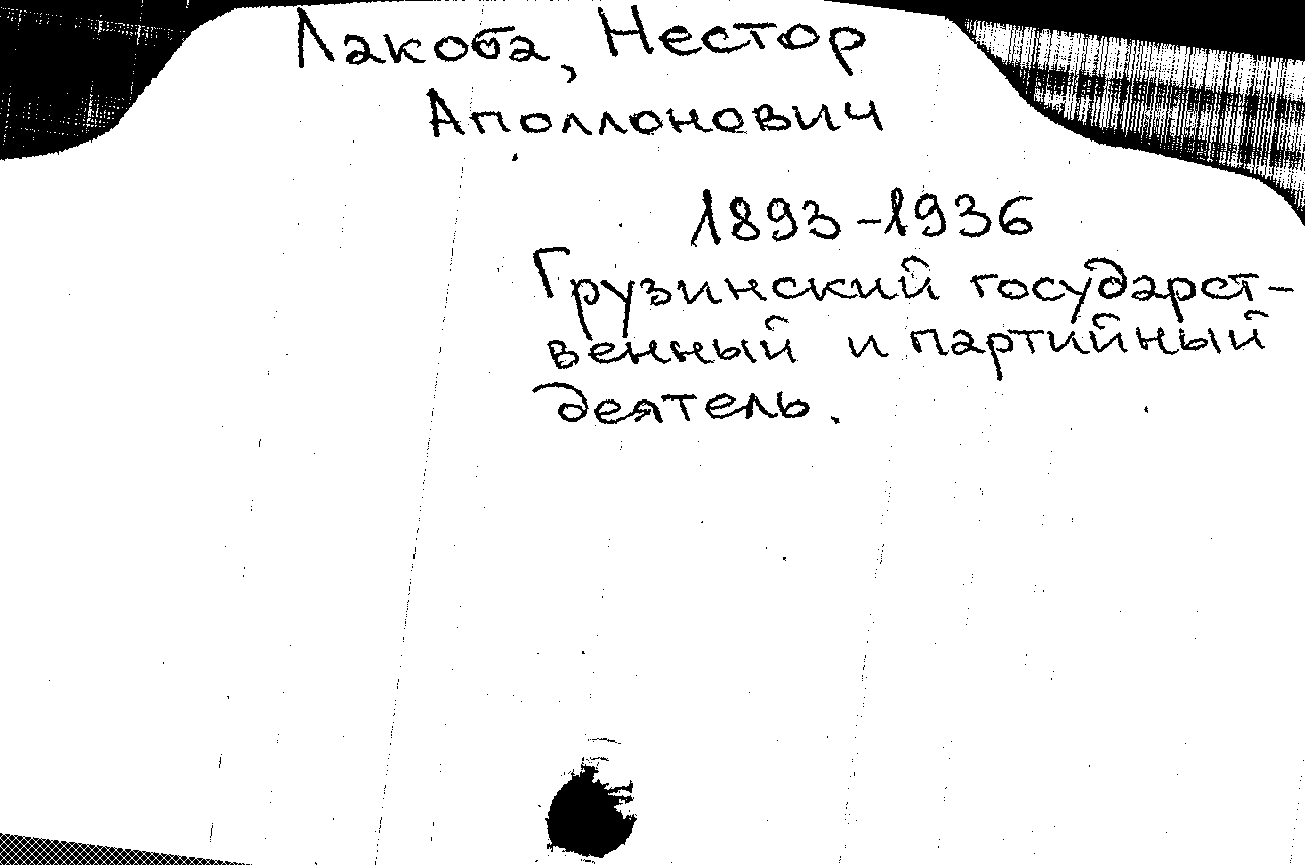 Лакоба, Нестор
Аполлонович
1893-1936
Грузинский государст-
венный и партийный
деятель.